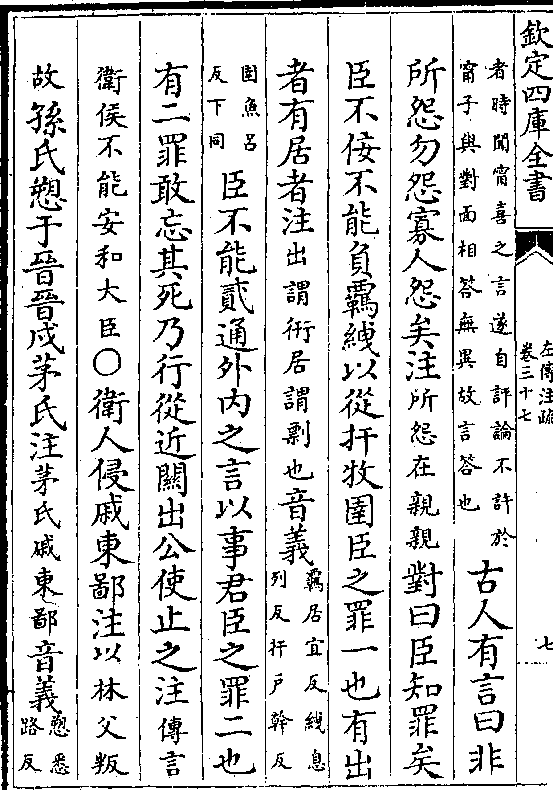 欽定四庫全書
左傳注疏
卷三十七
七
者時聞甯喜之言遂自評論不許於
甯子與對面相答無異故言答也
古人有言曰非
所怨勿怨寡人怨矣注所怨在親親對曰臣知罪矣
臣不佞不能負羈絏以從扞牧圉臣之罪一也有出
者有居者注出謂衎居謂剽也音義羈居宜反絏息
列反扞戶幹反
圉魚呂
反下同
臣不能貳通外内之言以事君臣之罪二也
有二罪敢忘其死乃行從近關出公使止之注傳言
衛侯不能安和大臣〇衛人侵戚東鄙注以林父叛
故孫氏愬于晉晉戍茅氏注茅氏戚東鄙音義愬悉
路反